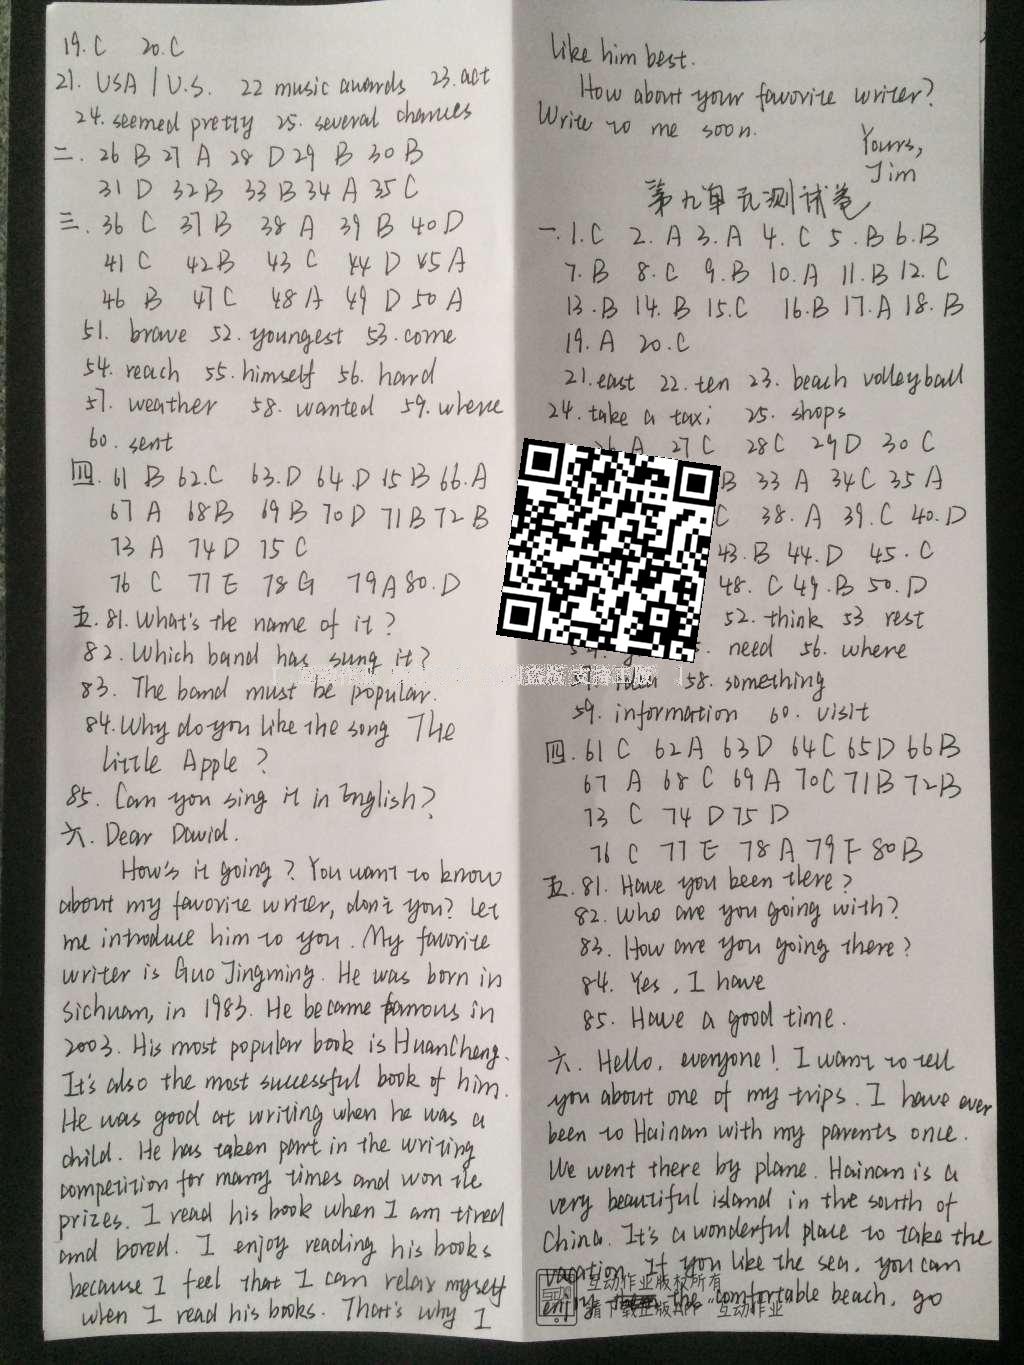 19. C 20. C
21. USA / U.S. 22 music awards 23. act
24. seemed pretty 25. several chances
二. 26 B 27 A 28 D 29 B 30 B
31 D 32 B 33 B 34 A 35 C
三. 36 C 37 B 38 A 39 B 40 D
41 C 42 B 43 C 44 D 45 A
46 B 47 C 48 A 49 D 50 A
51. brave 52. youngest 53. come
54. reach 55. himself 56. hard
57. weather 58. wanted 59. where
60. sent
四. 61 B 62. C 63. D 64. D 15 B 66. A
67 A 68 B 69 B 70 D 71 B 72 B
73 A 74 D 75 C
76 C 77 E 78 G 79 A 80. D
五. 81. What's the name of it?
82. Which band has sung it?
83. The band must be popular.
84. Why do you like the song The
Little Apple?
85. Can you sing it in English?
六. Dear David.
How's it going? You want to know
about my favorite writer, don't you? Let
me introduce him to you. My favorite
writer is Guo Jingming. He was born in
Sichuan, in 1983. He became famous in
2003. His most popular book is HuanCheng.
It's also the most successful book of him.
He was good at writing when he was a
child. He has taken part in the writing
competition for many times and won the
prizes. I read his book when I am tired
and bored. I enjoy reading his books
because I feel that I can relax myself
when I read his books. That's why I
like him best.
How about your favorite writer?
Write to me soon.
Yours,
Jim
第九单元测试卷
一. 1. C 2. A 3. A 4. C 5. B 6. B
7. B 8. C 9. B 10. A 11. B 12. C
13. B 14. B 15. C 16. B 17. A 18. B
19. A 20. C
21. east 22. ten 23. beach volleyball
24. take a taxi 25. shops
26 A 27 C 28 C 29 D 30 C
B 33 A 34 C 35 A
C 38. A 39. C 40. D
43. B 44. D 45. C
48. C 49. B 50. D
52. think 53 rest
need 56. where
58. something
59. information 60. visit
四. 61 C 62 A 63 D 64 C 65 D 66 B
67 A 68 C 69 A 70 C 71 B 72 B
73 C 74 D 75 D
76 C 77 E 78 A 79 F 80 B
五. 81. Have you been there?
82. Who are you going with?
83. How are you going there?
84. Yes, I have
85. Have a good time.
六. Hello, everyone! I want to tell
you about one of my trips. I have ever
been to Hainan with my parents once.
We went there by plane. Hainan is a
very beautiful island in the south of
China. It's a wonderful place to take the
vacation. If you like the sea, you can
enjoy the comfortable beach, go
互动作业版权所有
请下载正版APP "互动作业